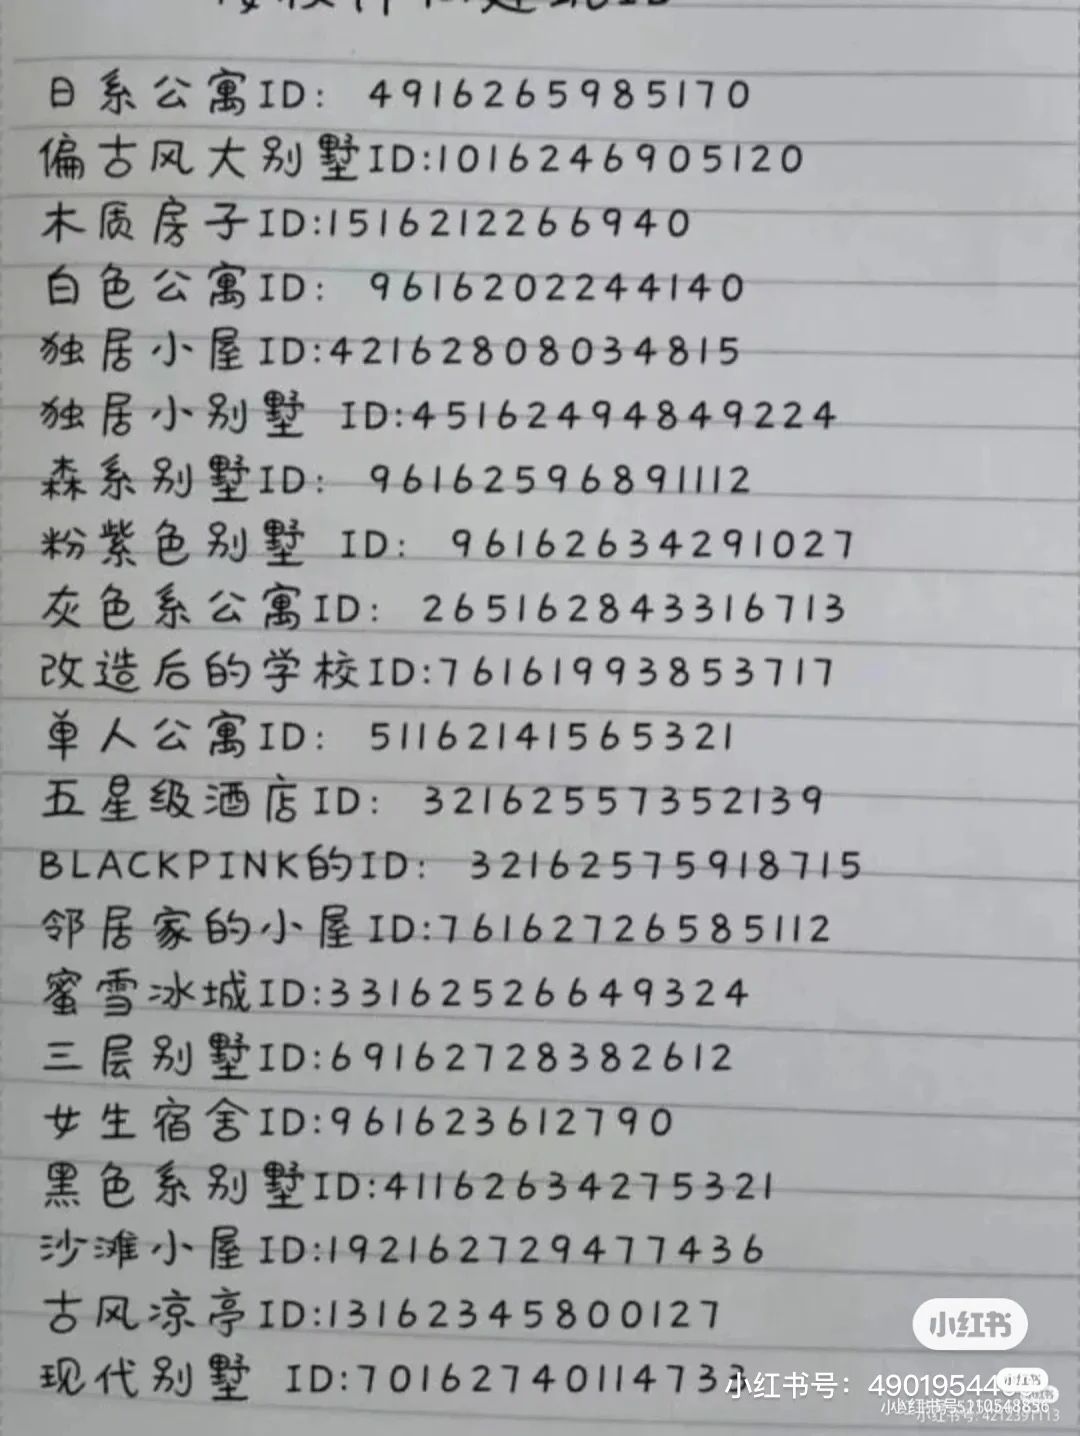 日系公寓ID: 4916265985170
偏古风大别墅ID:1016246905120
木质房子ID:1516212266940
白色公寓ID: 9616202244140
独居小屋ID:42162808034815
独居小别墅 ID:45162494849224
森系别墅ID: 96162596891112
粉紫色别墅 ID: 96162634291027
灰色系公寓ID: 265162843316713
改造后的学校ID:76161993853717
单人公寓ID: 51162141565321
五星级酒店ID: 32162557352139
BLACKPINK的ID: 32162575918715
邻居家的小屋ID:76162726585112
蜜雪冰城ID:33162526649324
三层别墅ID:69162728382612
女生宿舍ID:961623612790
黑色系别墅ID:41162634275321
沙滩小屋ID:192162729477436
古风凉亭ID:13162345800127
小红书
现代别墅 ID:70162740114733
小红书号: 49019544
小红书
小红书号:5110548856
小红书号:4212391113